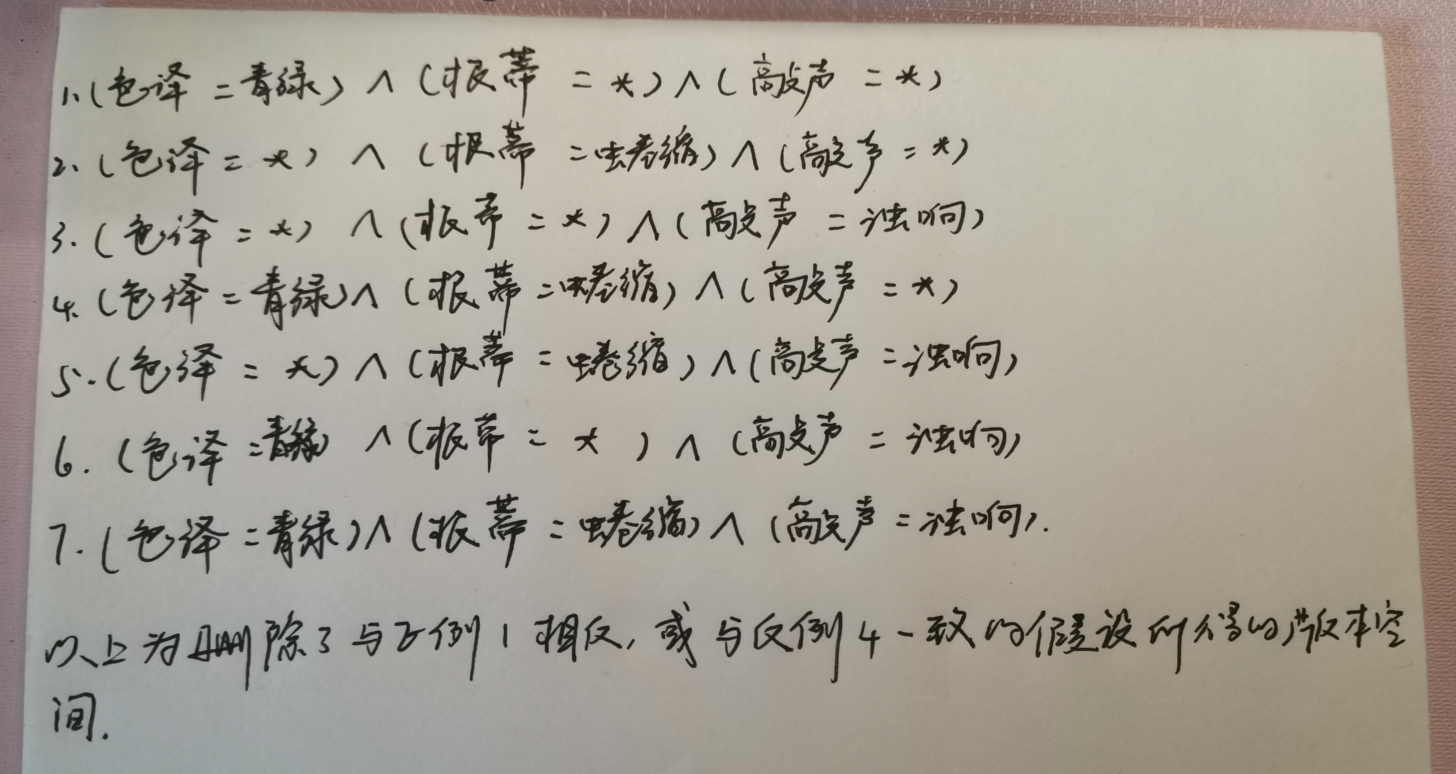 1、(色泽=青绿)∧(根蒂=*)∧(敲声=*)
2、(色泽=*)∧(根蒂=蜷缩)∧(敲声=*)
3.(色泽=*)∧(根蒂=*)∧(敲声=浊响)
4.(色泽=青绿)∧(根蒂=蜷缩)∧(敲声=*)
5.(色泽=*)∧(根蒂=蜷缩)∧(敲声=浊响)
6.(色泽=青绿)∧(根蒂=*)∧(敲声=浊响)
7.(色泽=青绿)∧(根蒂=蜷缩)∧(敲声=浊响).
以上为删除了与正例1相反,或与反例4一致的假设所得的版本空
间.